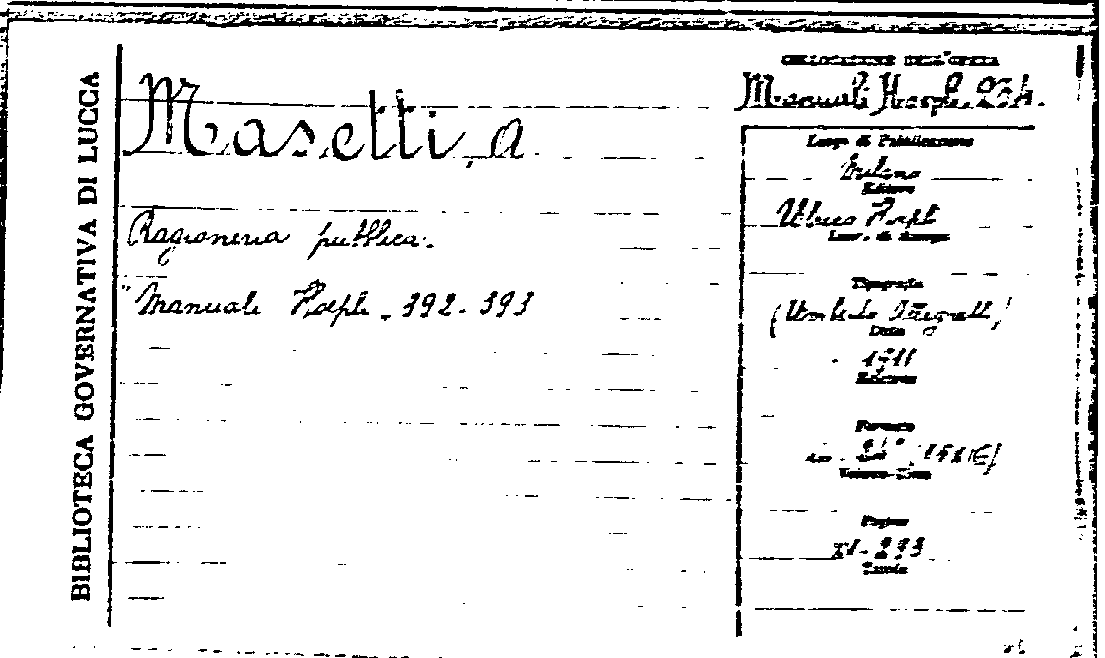 BIBLIOTECA GOVERNATIVA DI LUCCA
Masetti, a
Ragioneria pubblica.
"Manuale Hoepli - 392-393
COLLOCAZIONE DELL'OPERA
Manuali Hoepli
Luogo di Pubblicazione
Milano
Editore
Ulrico Hoepli
Luogo di Stampa
Tipografia
(Umberto Allegretti)
Data
1911
Edizione
Formato
in 24°
Pagine
XV-293
Tavole